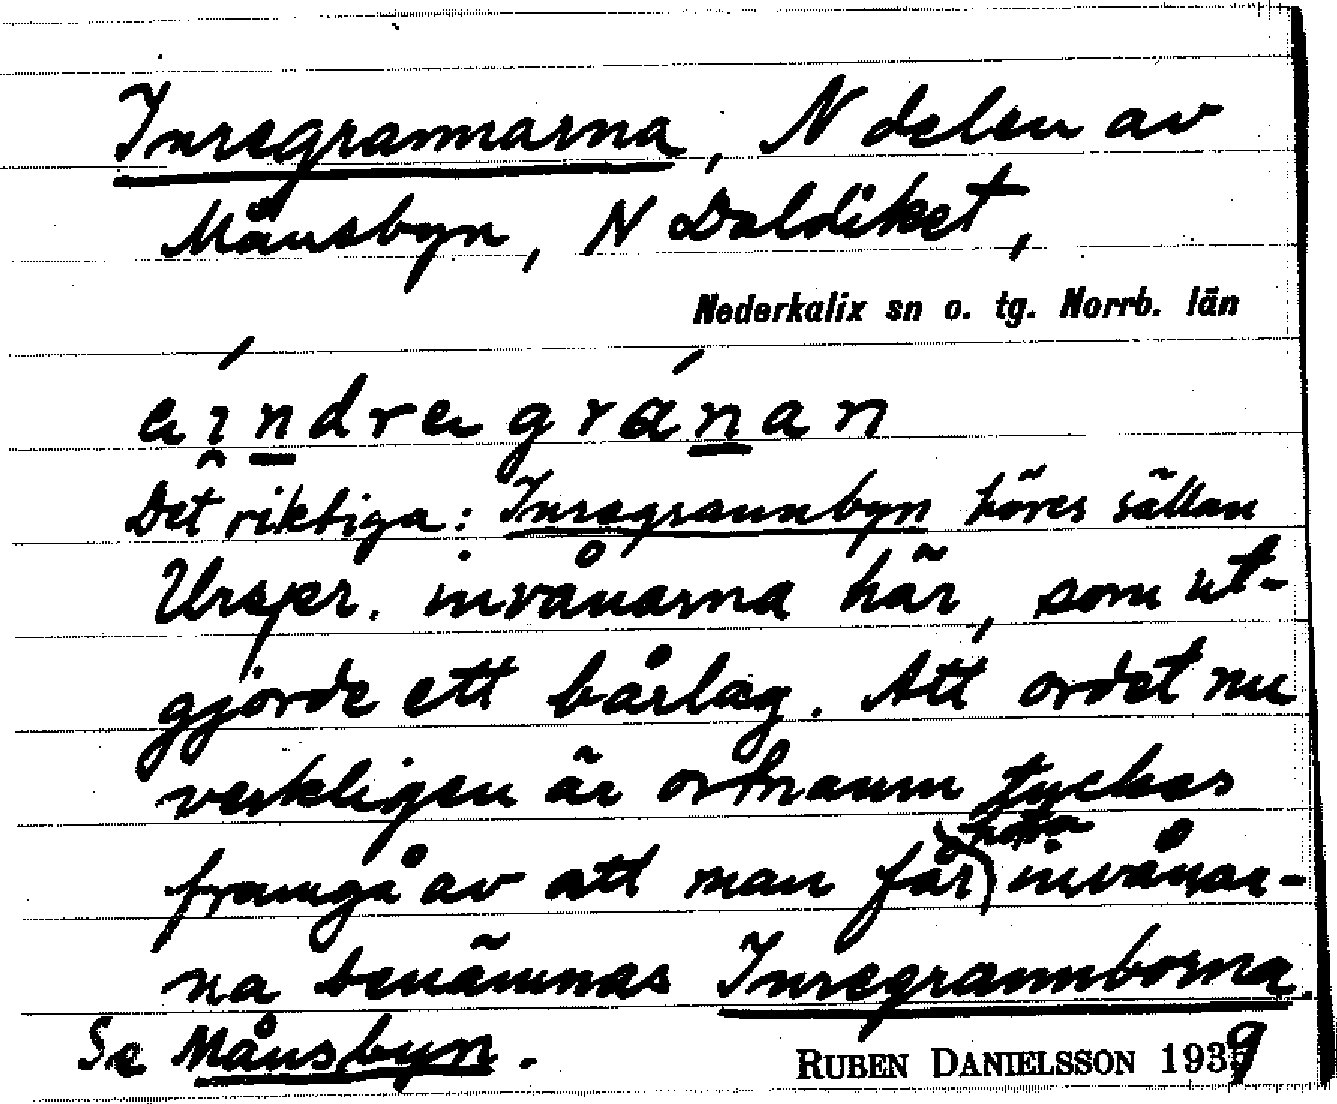 Inregrannarna, N delen av
Månsbyn, N Daldiket,
Nederkalix sn o. tg. Norrb. län
eindre gránan
Det riktiga: Inregrannbyn höres sällan
Urspr. invånarna här, som ut-
gjorde ett bårlag. Att ordet nu
verkligen är ortnamn tyckes
framgå av att man får höra invånar-
na benämnas Inregrannborna.
Se Månsbyn.
RUBEN DANIELSSON 1939